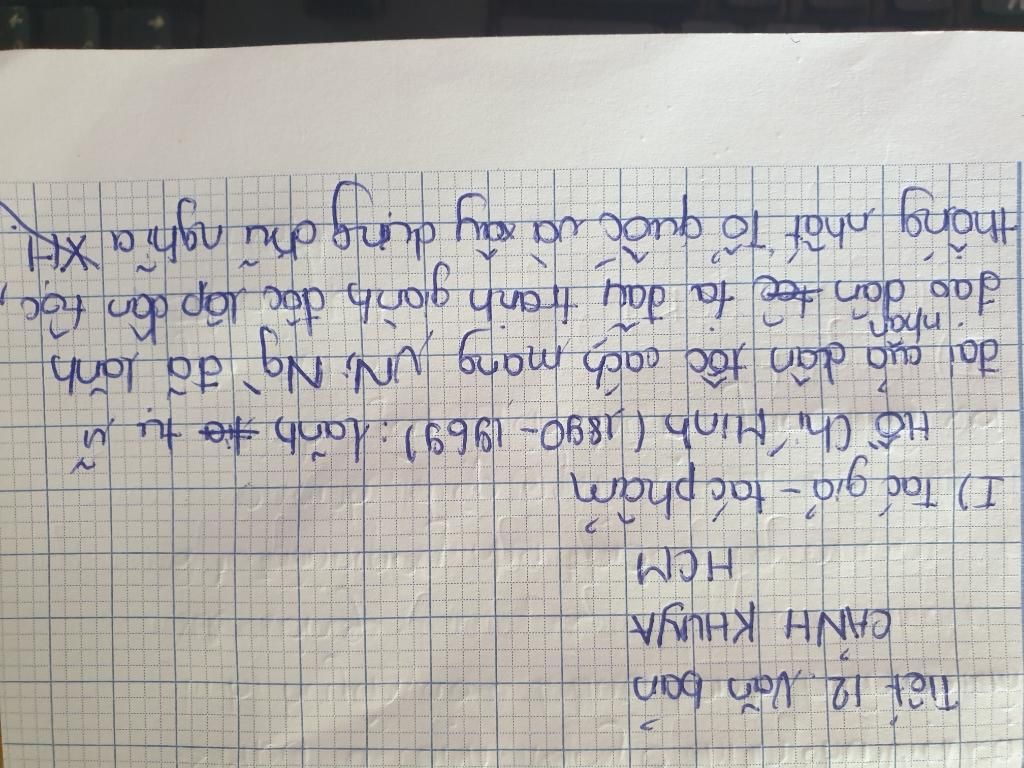 Tiết 12. Văn bản
CẢNH KHUYA
HCM
I) Tác giả - tác phẩm
Hồ Chí Minh (1890 - 1969): Lãnh tụ vĩ
đại của dân tộc cách mạng VN. Ng` đã lãnh
đạo nhân dân ta đấu tranh giành độc lập dân tộc,
thống nhất Tổ quốc và xây dựng chủ nghĩa XH.